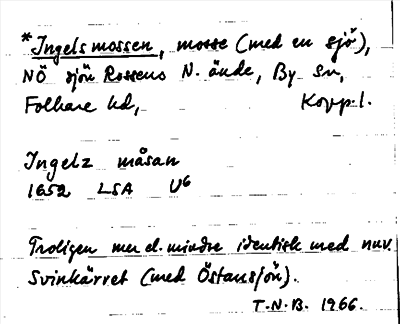 *Ingelsmossen, mosse (med en sjö),
NÖ sjön Rossens N. ände, By sn,
Folkare hd, Kopp.l.
Ingelz måsan
1652 LSA U6
Troligen mer el. mindre identisk med nuv.
Svinkärret (med Östansjön).
T.N.B. 1966.